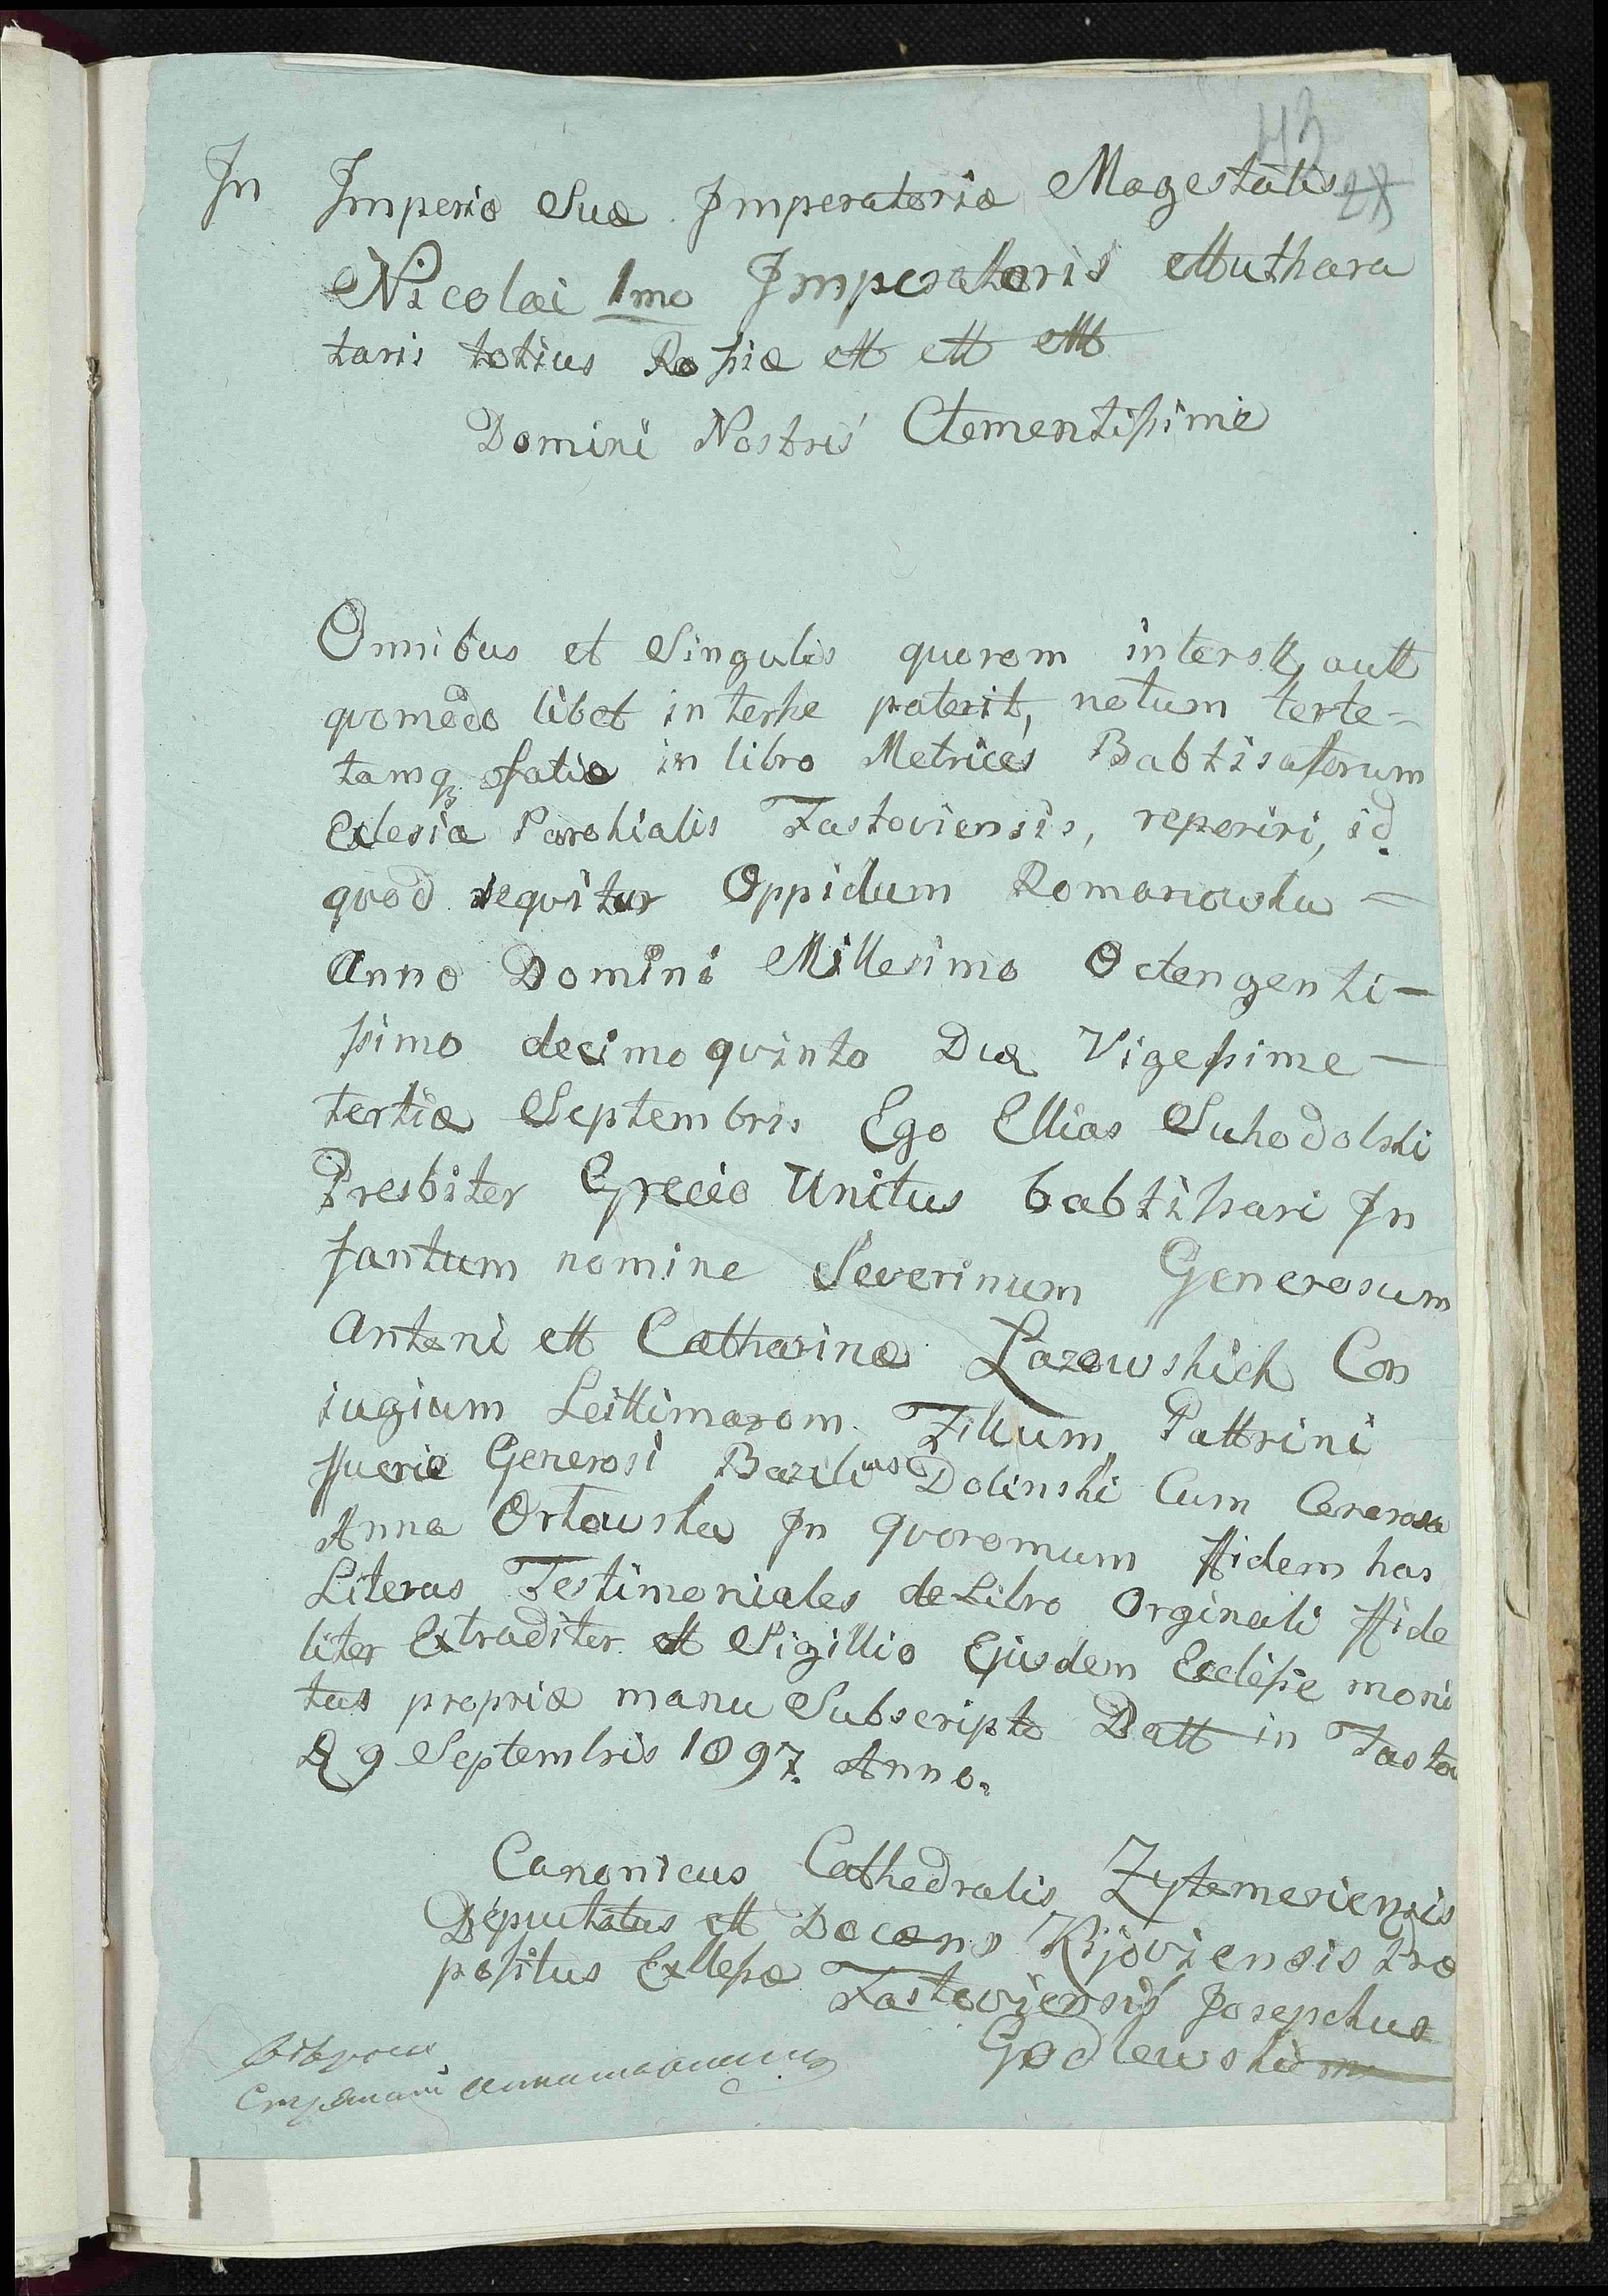 43
28
In Imperio Suæ Imperatoriæ Magestatis
Nicolai 1mo Imperatoris Authara
taris totius Roßiæ ett ett ett
Domini Nostris Clementißimie
Omnibus et Singulis quorom interstt, autt
quomodo libet interße paterit, notum terte-
tamq fatio in libro Metrices Babtisatorum
Exlesia Parohialis Fastoviensis, reperiri, id
quod sequitur Oppidum Romanowka -
Anno Domini Millesimo Octengenti-
ßimo decimo quinto Diæ Vigeßime -
tertiæ Septembris Ego Ellias Suhodolski
Presbiter Grecio Unitus babtißari In
fantum nomine Severinum Generosum
Antoni ett Catharinæ Lazowskich Con
iugium Leittimorom Fillium, Pattrini
ffuerie Generosi Bazilius Dolinski Cum Cenerosa
Anna Orlowska In quoromum ffidem has
Literas Testimoniales de Libro Orginali ffide
liter Extraditer ett Sigillio Ejusdem Ecclißie moni
tus propriæ manu Subscripto Datt in Fastow
D 9 Septembris 1897. Anno.
Canonicus Cathedralis Zytomeriensis
Deputatus ett Decano Kijoviensis Pro
poßitus Exlleßæ Fastoviensis Josepchus
Godlewski